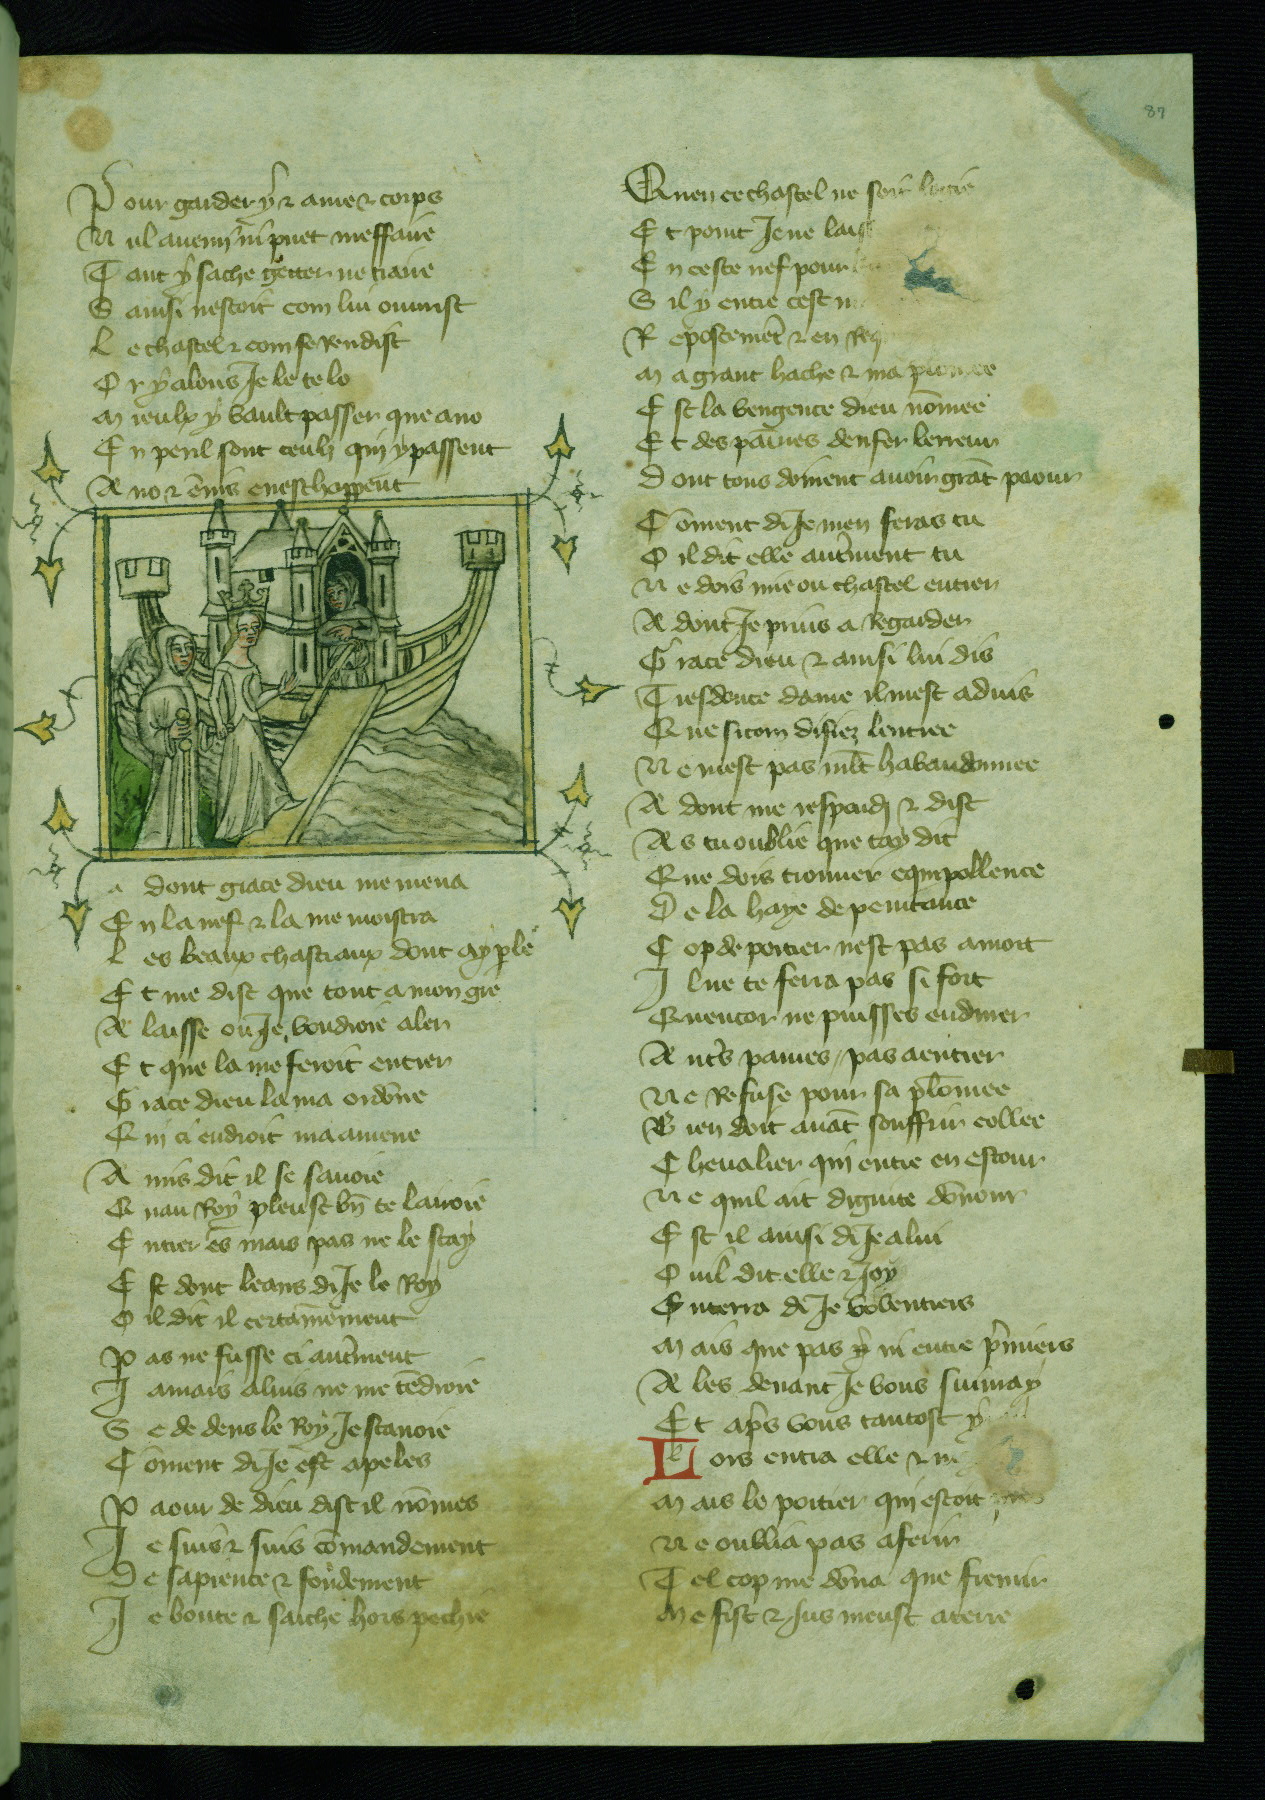 87
Pour garder y & ame & corps
Nul avenir ni puet meffaire
Tant y sache getter ne traire
S ainsi nestoit com lui ouvrist
Le chastel & com se rendist
Or y alons Je le te lo
Mieulx y vault passer que a no
En peril sont ceulx qui y passent
A no & enuis en eschappent
adont grace dieu me mena
En la nef & la me monstra
Les beaux chasteaux dont ay parle
Et me dist que tout a mon gre
A laisse ou Je voudroie aler
Et que la me feroit entrer
Grace dieu la ma ordone
Qui ci endroit ma amene
Amis dit il se savoie
Quau Roy pleust bn te lairoie
Entrer ens mais pas ne le scay
Est dont leans di Je le Roy
Oil dit il certainement
Pas ne fusse ci autrment
Jamais a luis ne me tendroie
Se de dens le Roy Je scavoie
Coment di Je est apeles
Paour de dieu dist il nomes
Je suis & suis comandement
De sapience & fondement
Je boute & sache hors pechie
Quen ce chastel ne soit
Et point Je ne lais
En ceste nef pour
Sil y entre cest
Repostement & en
Ma grant hache & ma plomee
Est la vengence dieu nomee
Et des paines denfer lerreur
Dont tous doivent avoir grat paour
Coment di Je men feras tu
Oil dit elle autrment tu
Ne dois mie ou chastel entrer
Adont Je prins a Regarder
Grace dieu & ainsi lui dis
Tresdouce dame il mest advis
Que si com disiez lentree
Ne mest pas mlt habandonnee
Adont me respondi & dist
As tu oublie que tay dit
Que dois trouver equipollence
De la haye de penitance
Cop de portier nest pas a mort
Il ne te ferra pas si fort
Quencor ne puisses endurer
Autrs paines / pas a entrer
Ne Refuse pour sa plomee
Bien doit avat souffrir collee
Chevalier qui entre en estour
Ne quil ait dignite donour
Est il ainsi di Je a lui
Ouil dit elle & Joy
Enterra di Je volentiers
Mais que pas y ni entre prmiers
Ales devant Je vous suivray
Et aprs vous tantost y
Lors entra elle &
Mais le portier qui estoit
Ne oublia pas a ferir
Tel cop me dona que fremir
Me fist & Jus meust a terre